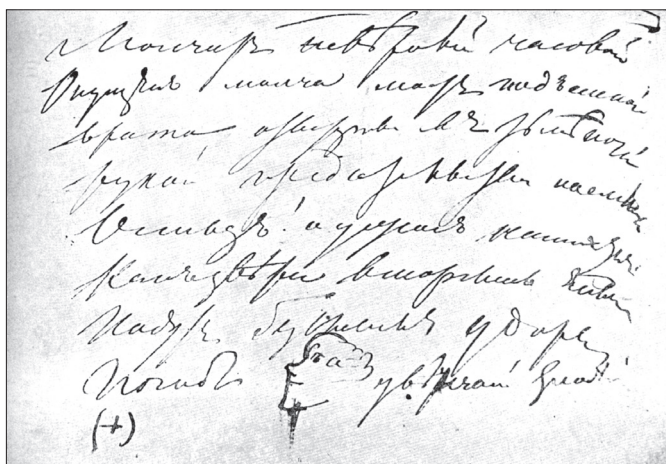 Молчитъ невѣрный часовой
Опущенъ молча мостъ подъемной
Врата отверсты въ тьмѣ ночной
Рукой предательства наемной
О стыдъ! о ужасъ нашихъ дней
Какъ звѣри вторглись
Падутъ безславные удары
Погибъ увѣнчанный злодѣй
(+)